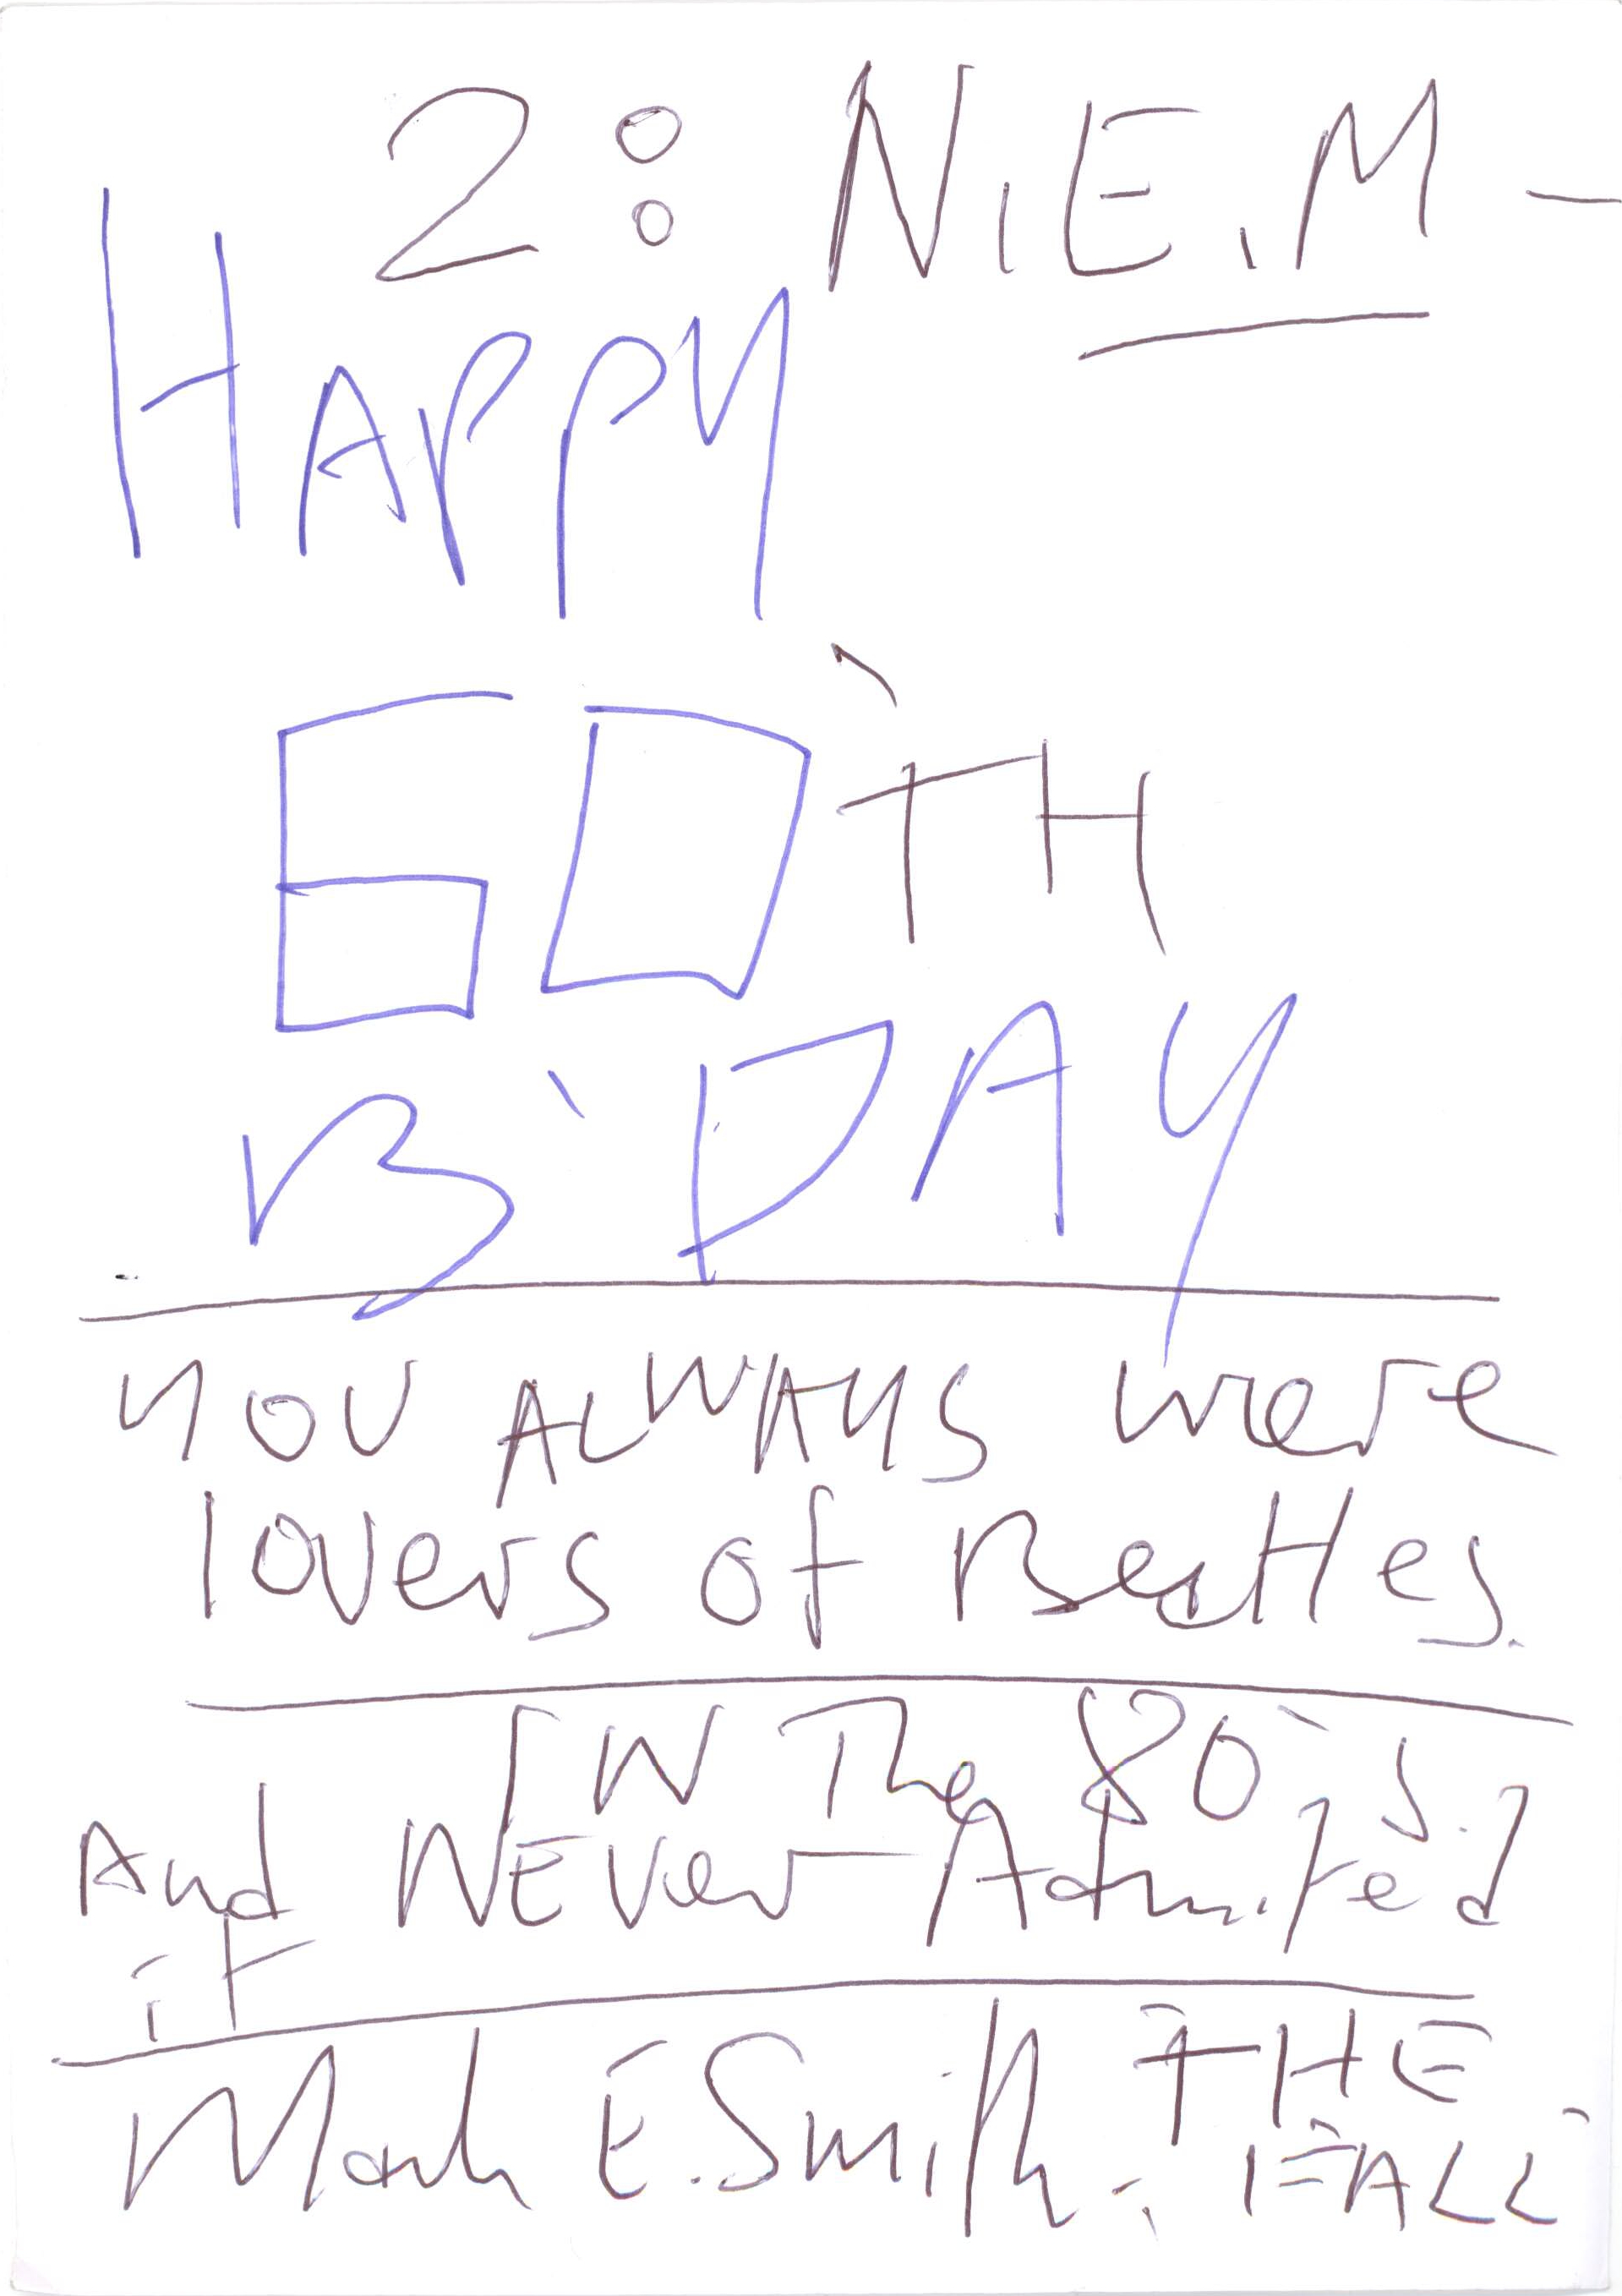 2: N.E.M-
HAPPY
60'TH
B'DAY
YOU ALWAYS were
lovers of Beatles.
IN The 80's.
And NEVer Admited
it
Mark E. Smith. THE
FALL